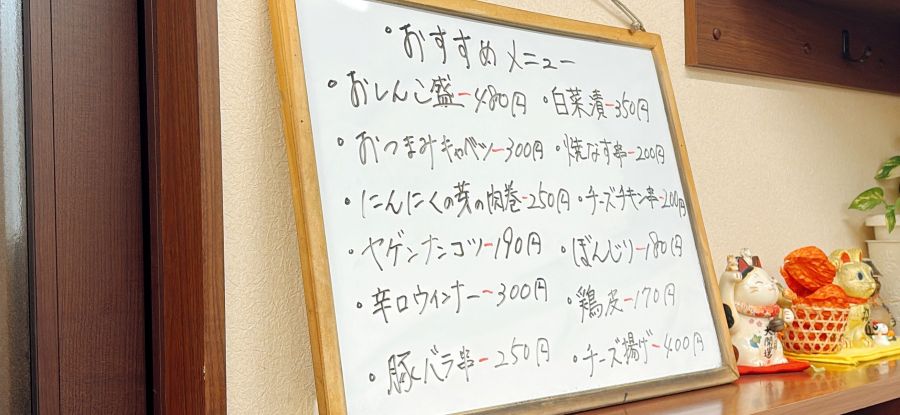 ・おすすめメニュー
・おしんこ盛ー480円 ・白菜漬ー350円
・おつまみキャベツー300円 ・焼なす串ー200円
・にんにくの芽の肉巻ー250円 ・チーズチキン串ー200円
・ヤゲンナンコツー190円 ・ぼんじりー180円
・辛口ウインナーー300円 ・鶏皮ー170円
・豚バラ串ー250円 ・チーズ揚げー400円
大開運